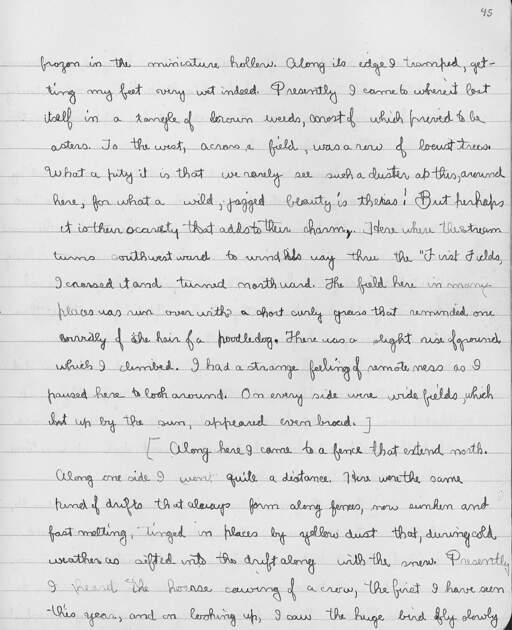 45
frozen in the miniature hollow. Along its edge I tramped, get-
ting my feet very wet indeed. Presently I came to where it lost
itself in a tangle of brown weeds, most of which proved to be
asters. To the west, across a field, was a row of locust trees.
What a pity it is that we rarely see such a cluster as this, around
here, for what a wild, jagged beauty is theirs! But perhaps
it is their scarcity that adds to their charm. Here where the stream
turns southwestward to wind its way thru the "First Fields,
I crossed it and turned northward. The field here in many
places was run over with a short curly grass that reminded one
of the hair of a poodle dog. There was a slight rise of ground
which I climbed. I had a strange feeling of remoteness as I
paused here to look around. On every side were wide fields, which
lit up by the sun, appeared even broad. ]
[ Along here I came to a fence that extend north.
Along one side I went quite a distance. Here were the same
kind of drifts that always form along fences, now sunken and
fast melting, tinged in places by yellow dust that, during cold
weather as sifted into the drift along with the snow. Presently
I heard the hoarse cawing of a crow, the first I have seen
this year, and on looking up, I saw the huge bird fly slowly